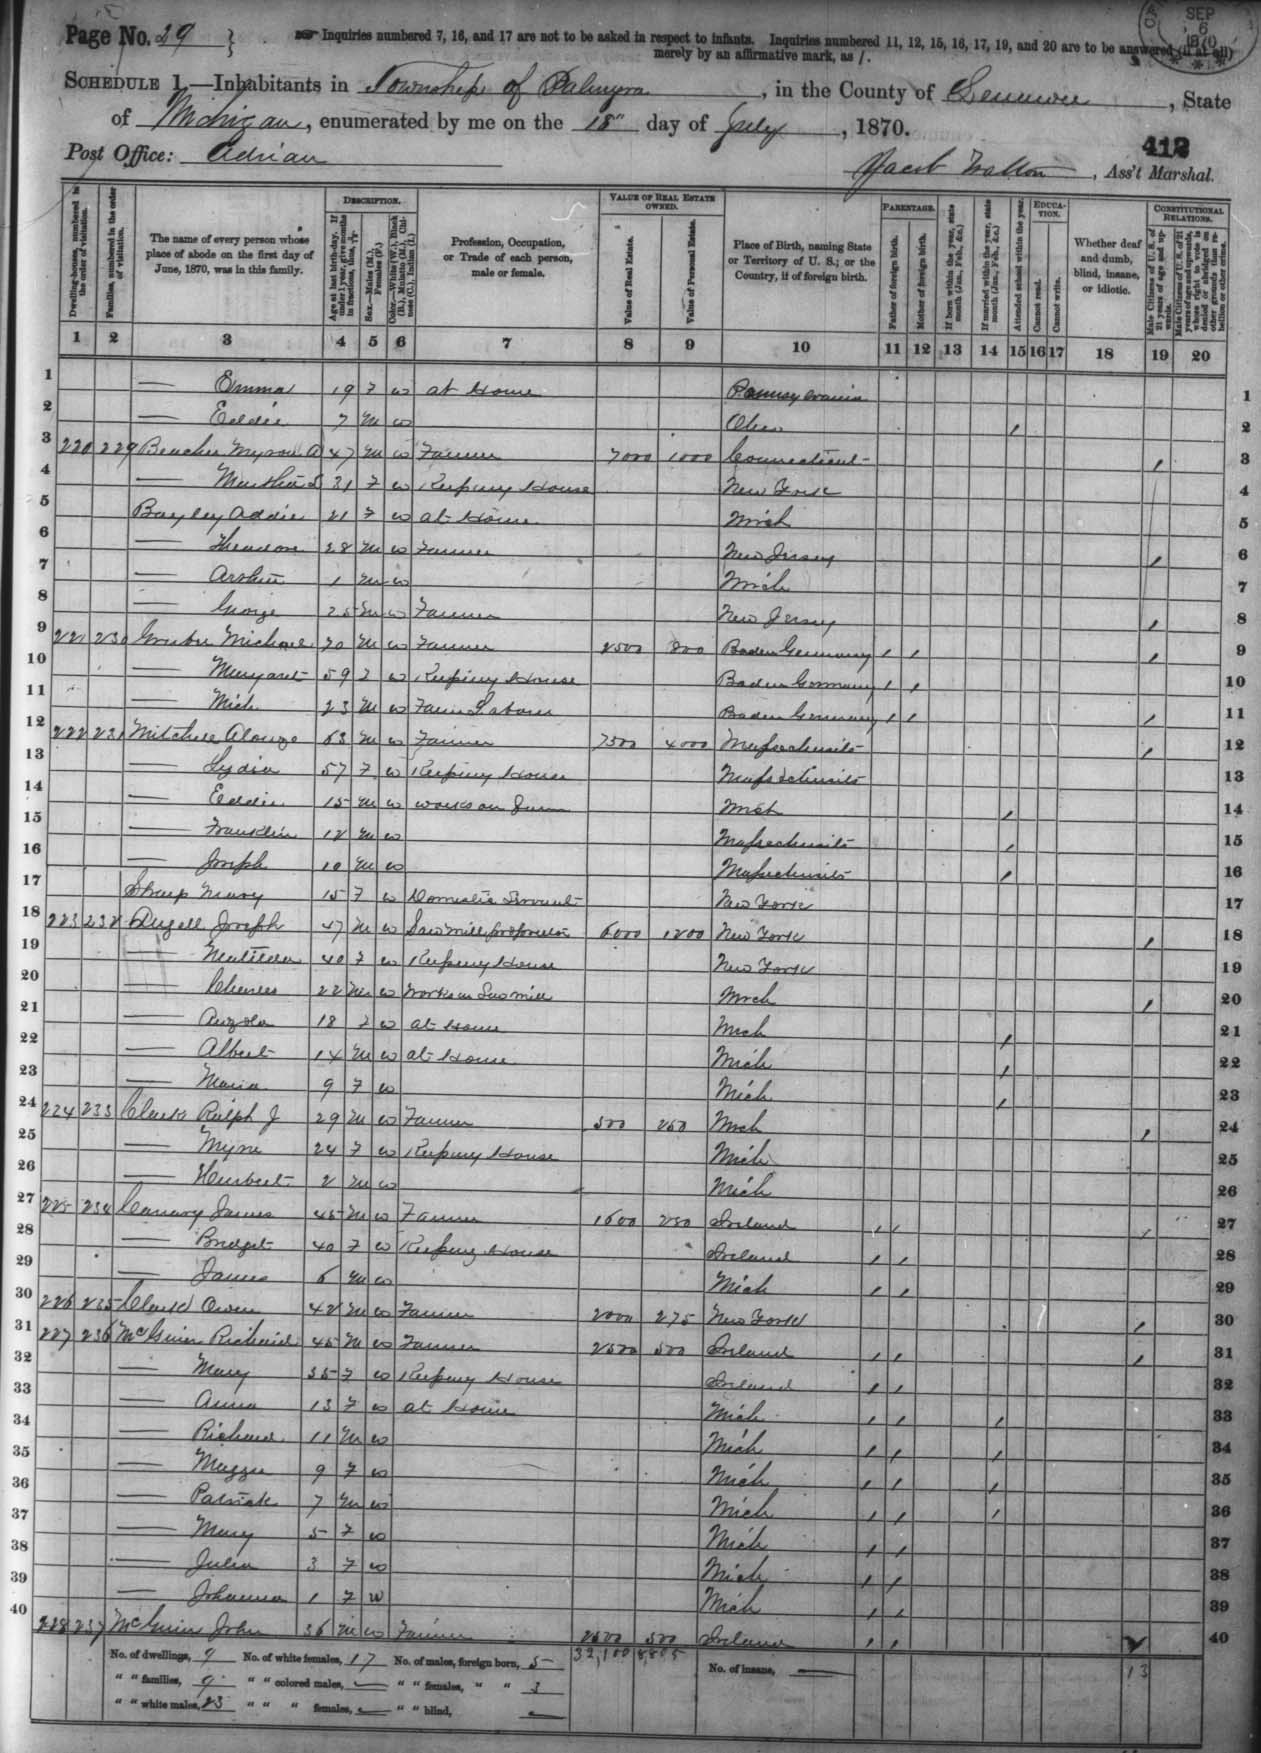 Page No. 29
Inquiries numbered 7, 16, and 17 are not to be asked in respect to infants. Inquiries numbered 11, 12, 15, 16, 17, 19, and 20 are to be answered (if at all)
merely by an affirmative mark, as /.
SEP
6
1870
SCHEDULE 1.—Inhabitants in Township of Palmyra, in the County of Lenawee, State
of Michigan, enumerated by me on the 18" day of July, 1870.
412
Post Office: Adrian
Jacob Walton, Ass't Marshal.
DESCRIPTION.
VALUE OF REAL ESTATE OWNED.
PARENTAGE.
EDUCATION.
CONSTITUTIONAL RELATIONS.
Dwelling-houses, numbered in the order of visitation.
Families, numbered in the order of visitation.
The name of every person whose place of abode on the first day of June, 1870, was in this family.
Age at last birth-day. If under 1 year, give months in fractions, thus, 3/12.
Sex.—Males (M.), Females (F.)
Color.—White (W.), Black (B.), Mulatto (M.), Chinese (C.), Indian (I.)
Profession, Occupation, or Trade of each person, male or female.
Value of Real Estate.
Value of Personal Estate.
Place of Birth, naming State or Territory of U. S.; or the Country, if of foreign birth.
Father of foreign birth.
Mother of foreign birth.
If born within the year, state month (Jan., Feb., &c.)
If married within the year, state month (Jan., Feb., &c.)
Attended school within the year.
Cannot read.
Cannot write.
Whether deaf and dumb, blind, insane, or idiotic.
Male Citizens of U. S. of 21 years of age and upwards.
Male Citizens of U. S. of 21 years of age and upwards, whose right to vote is denied or abridged on other grounds than rebellion or other crime.
1 2 3 4 5 6 7 8 9 10 11 12 13 14 15 16 17 18 19 20
1 — Emma 19 F W at Home Pennsylvania 1
2 — Eddie 7 M W Ohio / 2
3 220 229 Beacher Myron A 47 M W Farmer 7000 1000 Connecticut / 3
4 — Martha L 31 F W Keeping House New York 4
5 Bayley Addie 21 F W at Home Mich 5
6 — Theodore 28 M W Farmer New Jersey / 6
7 — Arthur 1 M W Mich 7
8 — George 25 M W Farmer New Jersey / 8
9 221 230 Michael 70 M W Farmer 2500 800 Baden Germany / / / 9
10 — Margaret 59 F W Keeping House Baden Germany / / 10
11 — Mich 23 M W Farm Labour Baden Germany / / / 11
12 222 231 Mitchell Alonzo 63 M W Farmer 7500 4000 Massachusetts / 12
13 — Lydia 57 F W Keeping House Massachusetts 13
14 — Eddie 15 M W works on Farm Mich / 14
15 — Franklin 12 M W Massachusetts / 15
16 — Joseph 10 M W Massachusetts / 16
17 Sharp Mary 15 F W Domestic Servant New York 17
18 223 232 Joseph 47 M W Saw mill proprietor 6000 1200 New York / 18
19 — Matilda 40 F W Keeping House New York 19
20 — Charles 22 M W Works in Saw mill Mich / 20
21 — 18 F W at Home Mich / 21
22 — Albert 14 M W at House Mich / 22
23 — Maria 9 F W Mich / 23
24 224 233 Clark Ralph J 29 M W Farmer 500 250 Mich / 24
25 — Myra 24 F W Keeping House Mich 25
26 — Herbert 2 M W Mich 26
27 225 234 Canary James 45 M W Farmer 1600 250 Ireland / / / 27
28 — Bridget 40 F W Keeping House Ireland / / 28
29 — James 6 M W Mich / / 29
30 226 235 Clark Owen 42 M W Farmer 2000 275 New York / 30
31 227 236 McGuire Richard 45 M W Farmer 2500 500 Ireland / / / 31
32 — Mary 35 F W Keeping House Ireland / / 32
33 — Anna 13 F W at Home Mich / / / 33
34 — Richard 11 M W Mich / / / 34
35 — Maggie 9 F W Mich / / / 35
36 — Patrick 7 M W Mich / / / 36
37 — Mary 5 F W Mich / / 37
38 — Julia 3 F W Mich / / 38
39 — Johanna 1 F W Mich / / 39
40 228 237 McGuire John 36 M W Farmer 2500 500 Ireland / / / 40
No. of dwellings, 9 No. of white females, 17 No. of males, foreign born, 5 32,100 8,805 No. of insane, — 13
" " families, 9 " " colored males, — " " females, " " 3
" " white males, 23 " " " females, — " " blind, —